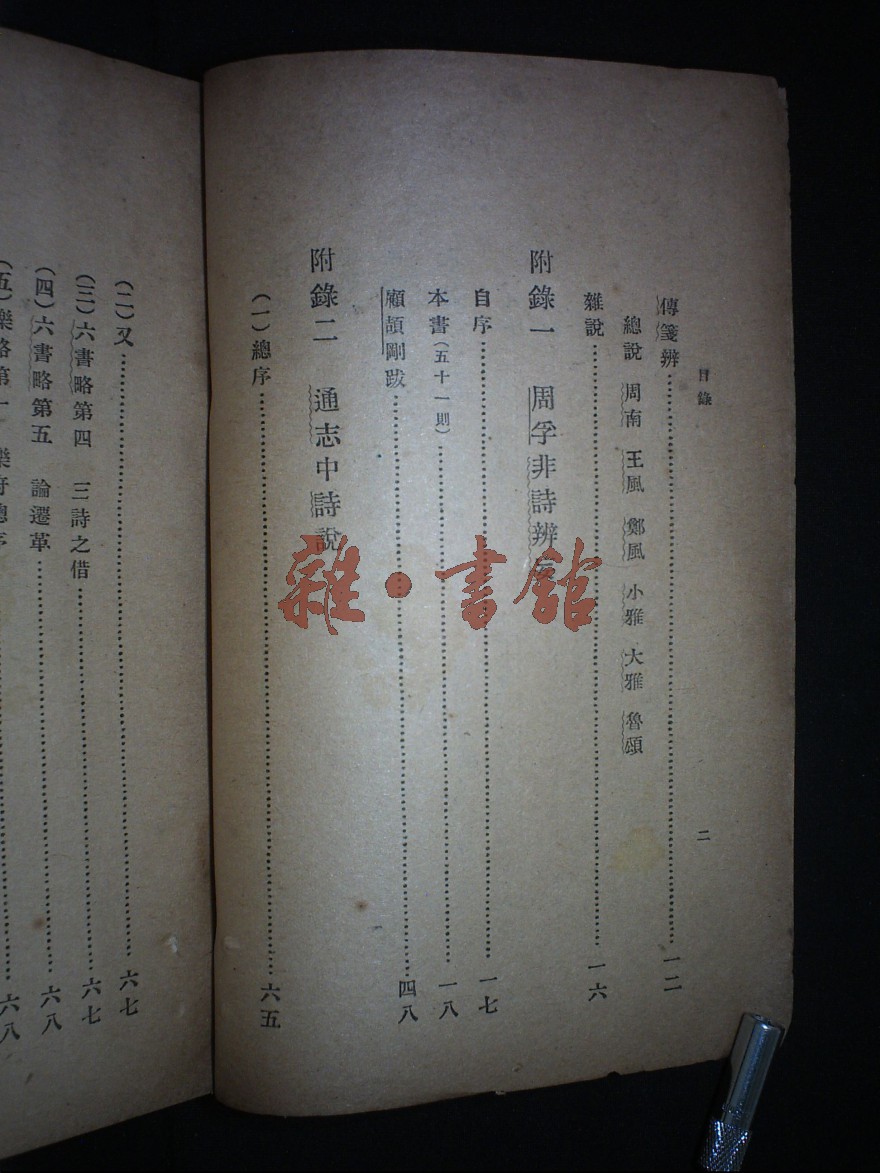 目錄
二
傳箋辨……一二
總說 周南 王風 鄭風 小雅 大雅 魯頌
雜說……一六
附錄一 周孚非詩辨妄
自序……一七
本書(五十一則)……一八
顧頡剛跋……四八
附錄二 通志中詩說
(一)總序……六五
(二)又……六七
(三)六書略第四 三詩之借……六七
(四)六書略第五 論遷革……六八
(五)樂略第一 樂府總序……六八
雜·書館